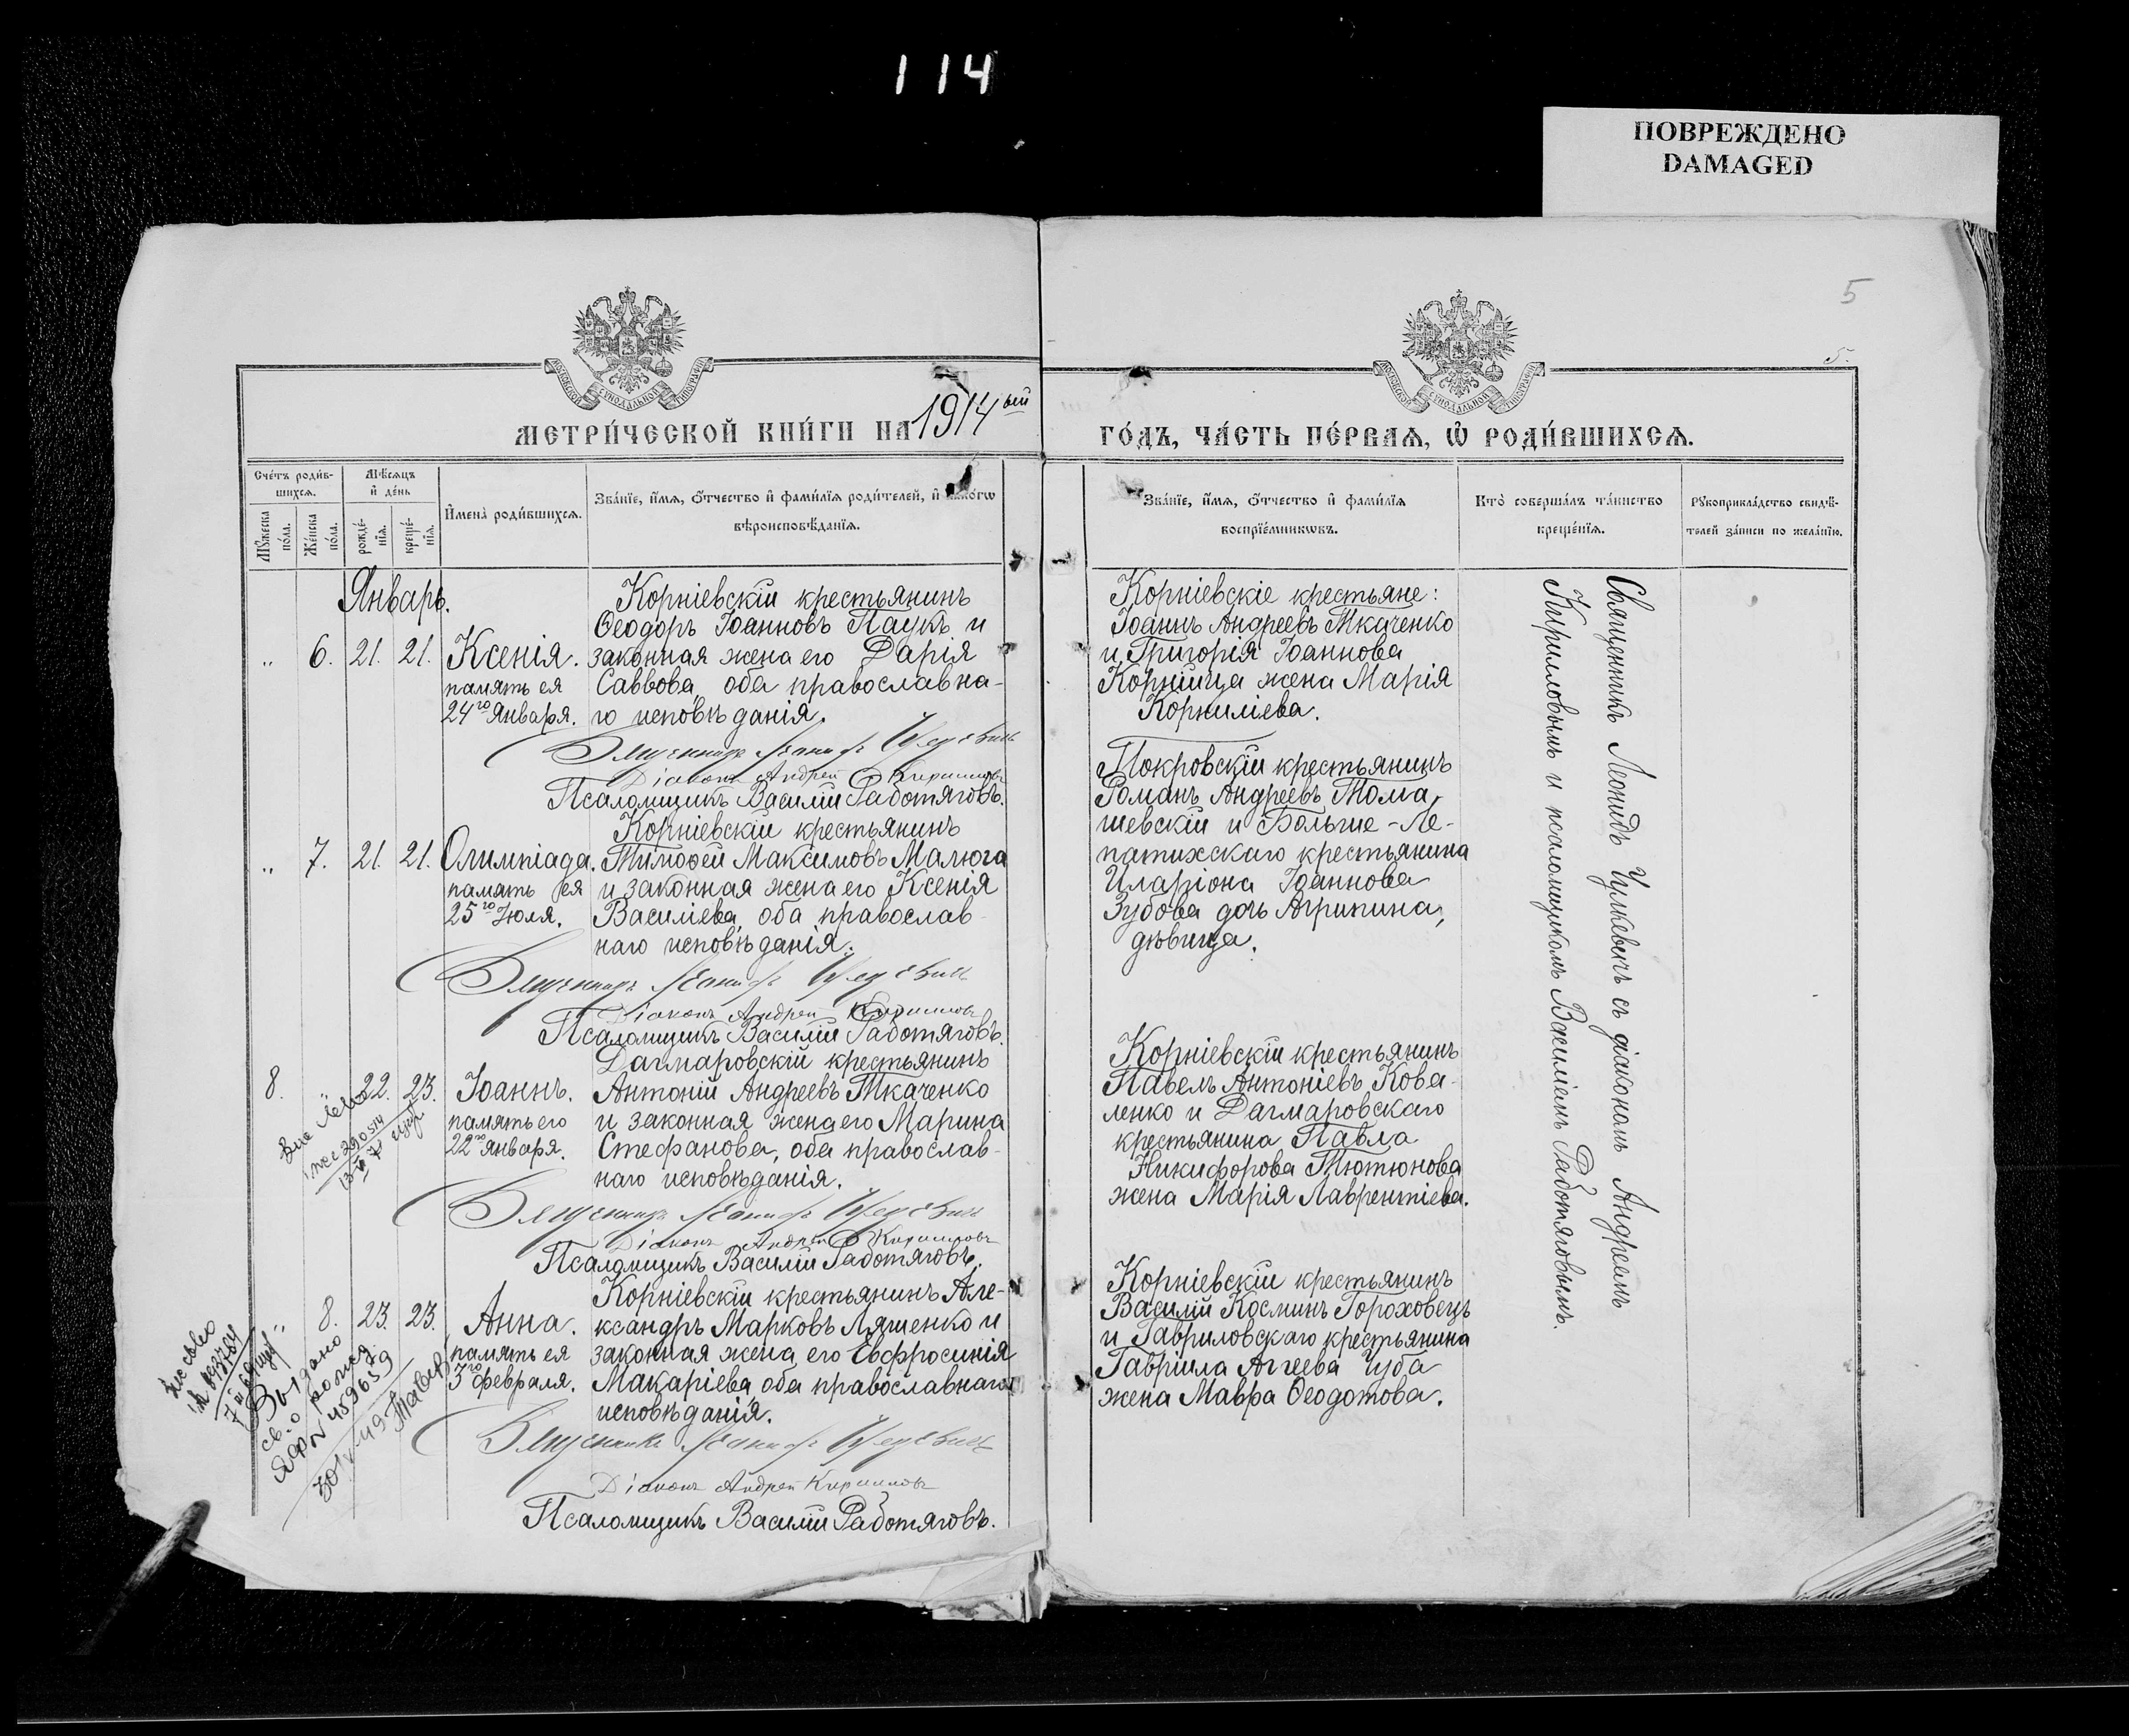 114
ПОВРЕЖДЕНО
DAMAGED
5
5.
МОСКОВСКОЙ СѴНОДАЛЬНОЙ ТИПОГРАФІИ
МОСКОВСКОЙ СѴНОДАЛЬНОЙ ТИПОГРАФІИ
МЕТРИ́ЧЕСКОЙ КНИ́ГИ НА 1914ый
ГО́ДЪ, ЧА́СТЬ ПЕ́РВАѦ, Ѡ҆ РОДИ́ВШИХСѦ.
Сче́тъ роди́в-
шихсѧ.
Мꙋ́жеска по́ла.
Же́нска по́ла.
Мѣ́сѧцъ
и҆ де́нь
рожде́-
нїѧ.
креще́-
нїѧ.
И҆мена̀ роди́вшихсѧ.
Зва́нїе, и҆́мѧ, ѻ҆́тчество и҆ фами́лїѧ роди́телей, и҆ како́гѡ
вѣроисповѣ́данїѧ.
Зва́нїе, и҆́мѧ, ѻ҆́тчество и҆ фами́лїѧ
воспрїе́мникѡвъ.
Кто̀ соверша́лъ та́инство
креще́нїѧ.
Рꙋкоприкла́дство свидѣ́-
телей за́писи по жела́нїю.
Январь.
„ 6. 21. 21. Ксенія.
память ея
24го Января.
Корніевскій крестьянинъ
Ѳеодоръ Іоанновъ Паукъ и
законная жена его Дарія
Саввова, оба православна-
го исповѣданія.
Священникъ Леонидъ Чулкевичъ
Діаконъ Андрей Кирилловъ
Псаломщикъ Василій Работяговъ.
Корніевскіе крестьяне:
Іоаннъ Андреевъ Ткаченко
и Григорія Іоаннова
Корнійца жена Марія
Корниліева.
„ 7. 21. 21. Олимпіада.
память ея
25го Іюля.
Корніевскій крестьянинъ
Тимоѳей Максимовъ Малюга
и законная жена его Ксенія
Василіева, оба православ-
наго исповѣданія.
Священникъ Леонидъ Чулкевичъ
Діаконъ Андрей Кирилловъ
Псаломщикъ Василій Работяговъ.
Покровскій крестьянинъ
Романъ Андреевъ Тома-
шевскій и Больше-Ле-
патихскаго крестьянина
Иларіона Іоаннова
Зубова дочь Агрипина,
дѣвица.
8. 22. 23. Іоаннъ.
память его
22го Января.
Дагмаровскій крестьянинъ
Антоній Андреевъ Ткаченко
и законная жена его Марина
Стефанова, оба православ-
наго исповѣданія.
Священникъ Леонидъ Чулкевичъ
Діаконъ Андрей Кирилловъ
Псаломщикъ Василій Работяговъ.
Корніевскій крестьянинъ
Павелъ Антоніевъ Кова-
ленко и Дагмаровскаго
крестьянина Павла
Никифорова Тютюнова
жена Марія Лаврентіева.
„ 8. 23. 23. Анна.
память ея
3го февраля.
Корніевскій крестьянинъ Але-
ксандръ Марковъ Ляшенко и
законная жена его Евфросинія
Макаріева, оба православнаго
исповѣданія.
Священникъ Леонидъ Чулкевичъ
Діаконъ Андрей Кирилловъ
Псаломщикъ Василій Работяговъ.
Корніевскій крестьянинъ
Василій Косминъ Гороховецъ
и Гавриловскаго крестьянина
Гавріила Аггеева Чуба
жена Мавра Ѳеодотова.
Священникъ Леонидъ Чулкевичъ съ діакономъ Андреемъ
Кирилловымъ и псаломщикомъ Василіемъ Работяговымъ.
Выдано
св. о рожд.
459659